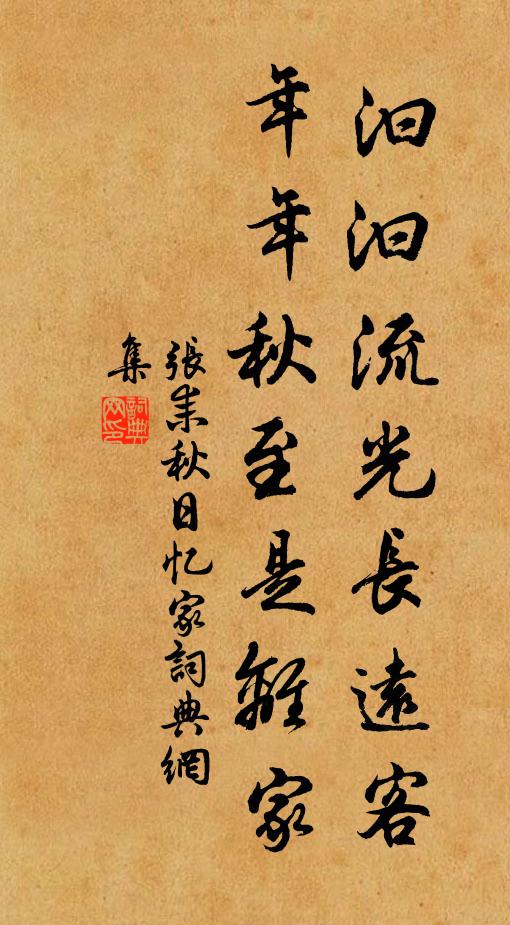 汩汩流光長遠客
年年秋至是離家
張耒秋日忆家詞典網
集
詞典
网印